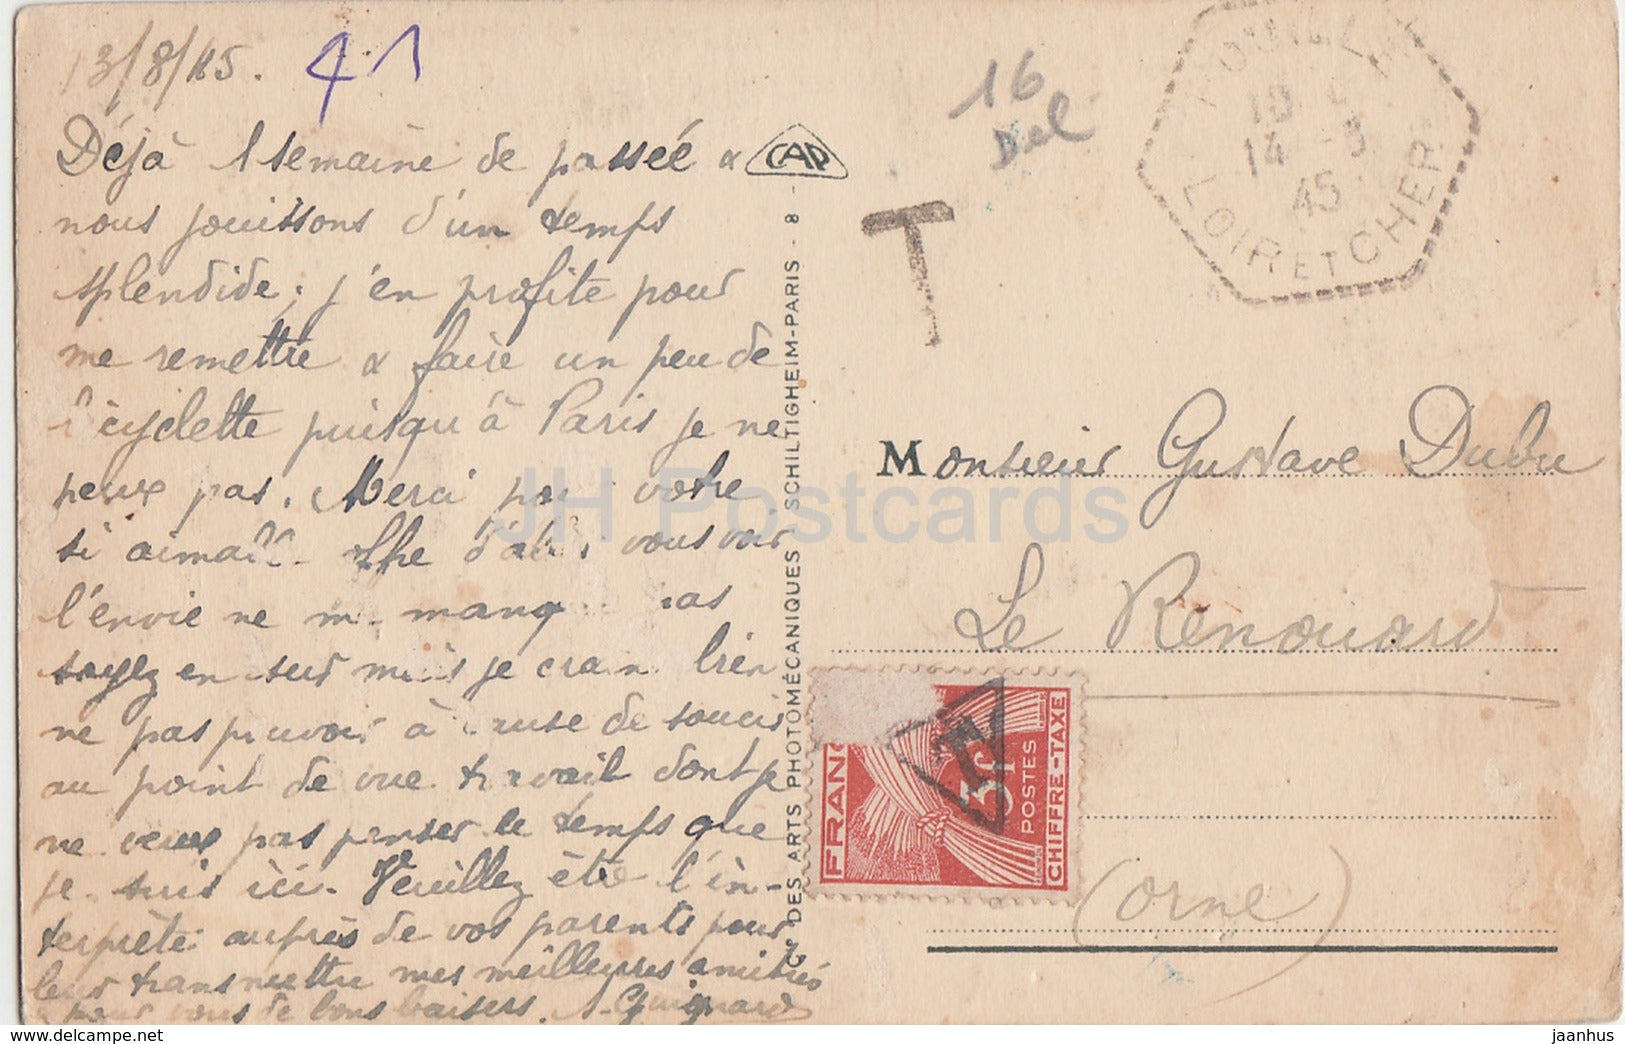 13/8/45. 41
Déjà 1 semaine de passée &
nous jouissons d'un temps
splendide; j'en profite pour
me remettre & faire un peu de
bicyclette puisqu'à Paris je ne
peux pas. Merci pour votre
si aimable. d'aller vous voir
l'envie ne me manque pas
soyez en sur mais je crains bien
ne pas pouvoir à cause de soucis
au point de vue travail dont je
ne veux pas penser le temps que
je suis ici. Veuillez être l'in-
terprète auprès de vos parents pour
leur transmettre mes meilleures amitiés
& pour vous de bons baisers. Guignard
CAP
Cie DES ARTS PHOTOMÉCANIQUES SCHILTIGHEIM-PARIS - 8 -
16
Del
T
POUILLÉ
18
14 - 8
45
LOIR ET CHER
Monsieur Gustave Dubu
Le Renouard
(Orne)
FRANC
3f
POSTES
CHIFFRE-TAXE
T
JH Postcards
jaanhus